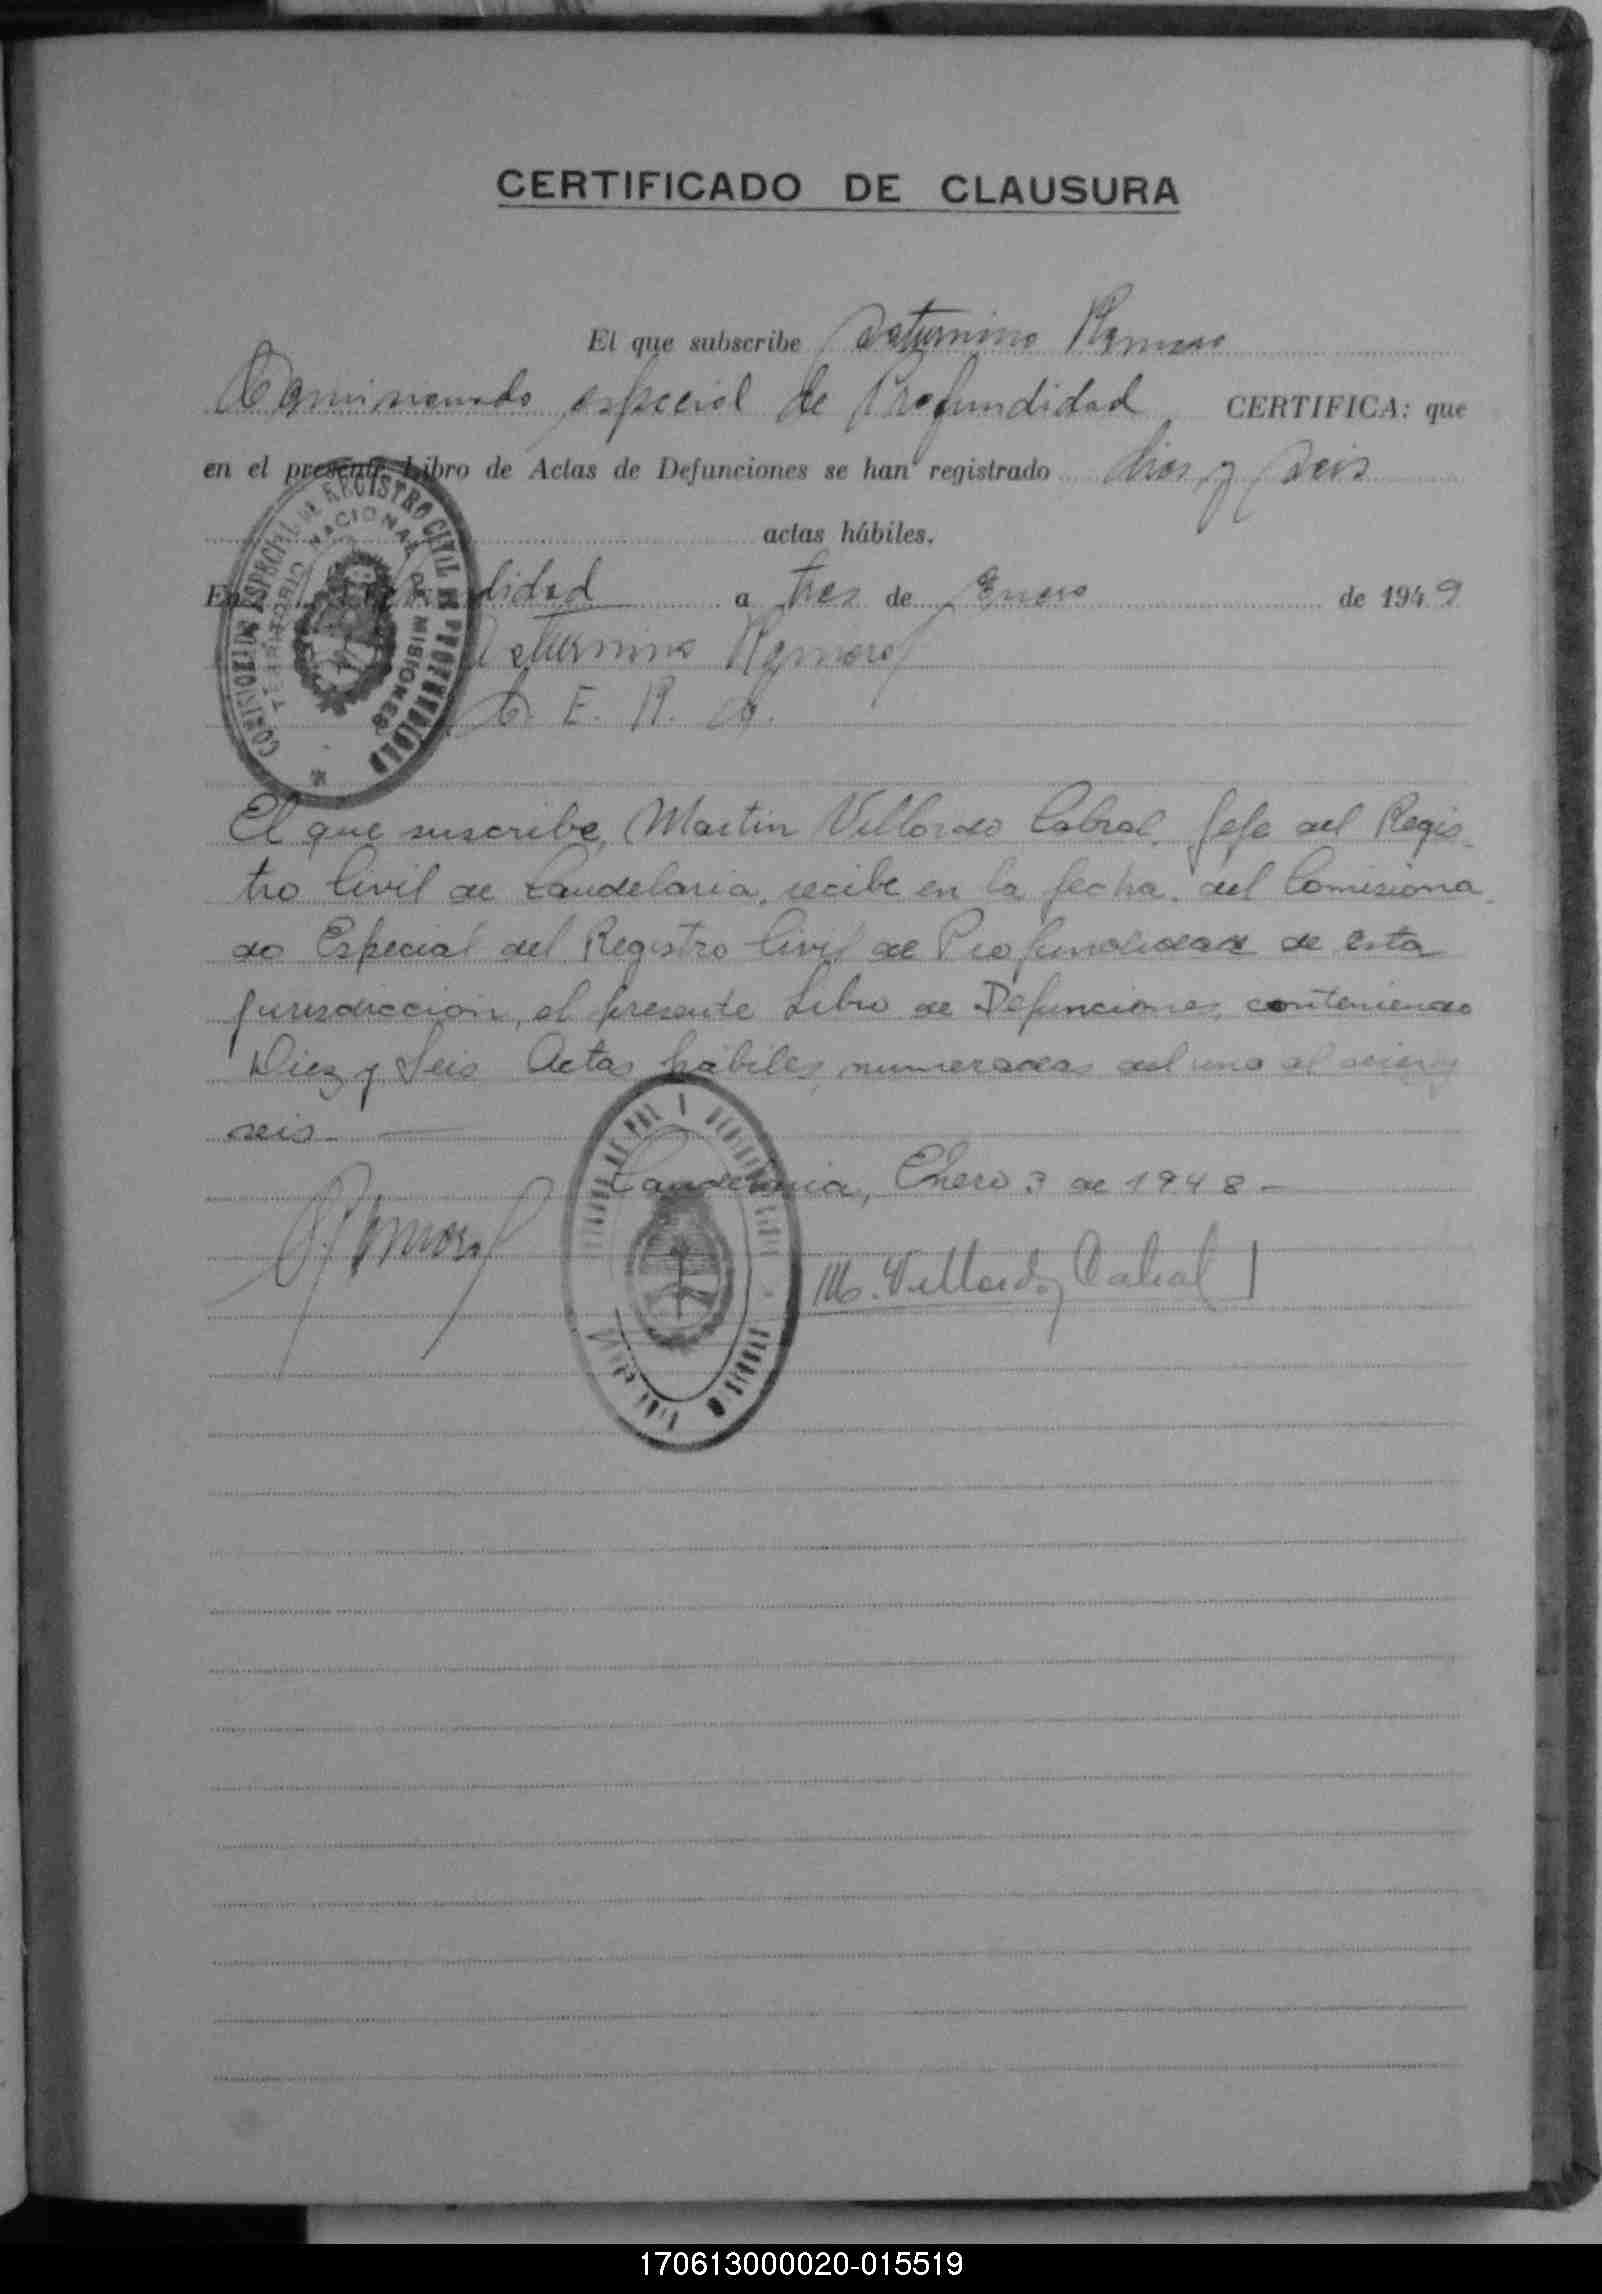 CERTIFICADO DE CLAUSURA
El que subscribe Saturnino Romero
Comisionado especial de Profundidad CERTIFICA: que
en el presente Libro de Actas de Defunciones se han registrado dies y seis
actas hábiles.
En Profundidad a tres de Enero de 1949
Saturnino Romero
C. E. R. C.
COMISIONADO ESPECIAL DE REGISTRO CIVIL DE PROFUNDIDAD
TERRITORIO NACIONAL DE MISIONES
El que suscribe, Martin Villordo Cabral, Jefe del Regis-
tro Civil de Candelaria, recibe en la fecha, del Comisiona-
do Especial del Registro Civil de Profundidad de esta
jurisdiccion, el presente Libro de Defunciones, conteniendo
Diez y Seis Actas hábiles, numeradas del uno al diez y
seis.
Candelaria, Enero 3 de 1948-
S. Romero
M. Villordo Cabral
170613000020-015519